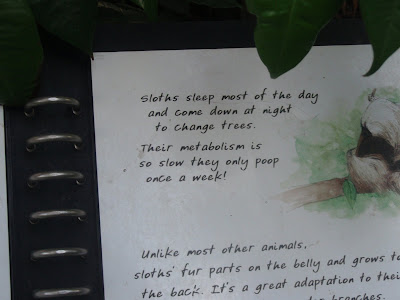 Sloths sleep most of the day
and come down at night
to change trees.
Their metabolism is
so slow they only poop
once a week!
Unlike most other animals,
sloths' fur parts on the belly and grows to
the back. It's a great adaptation to their
branches.